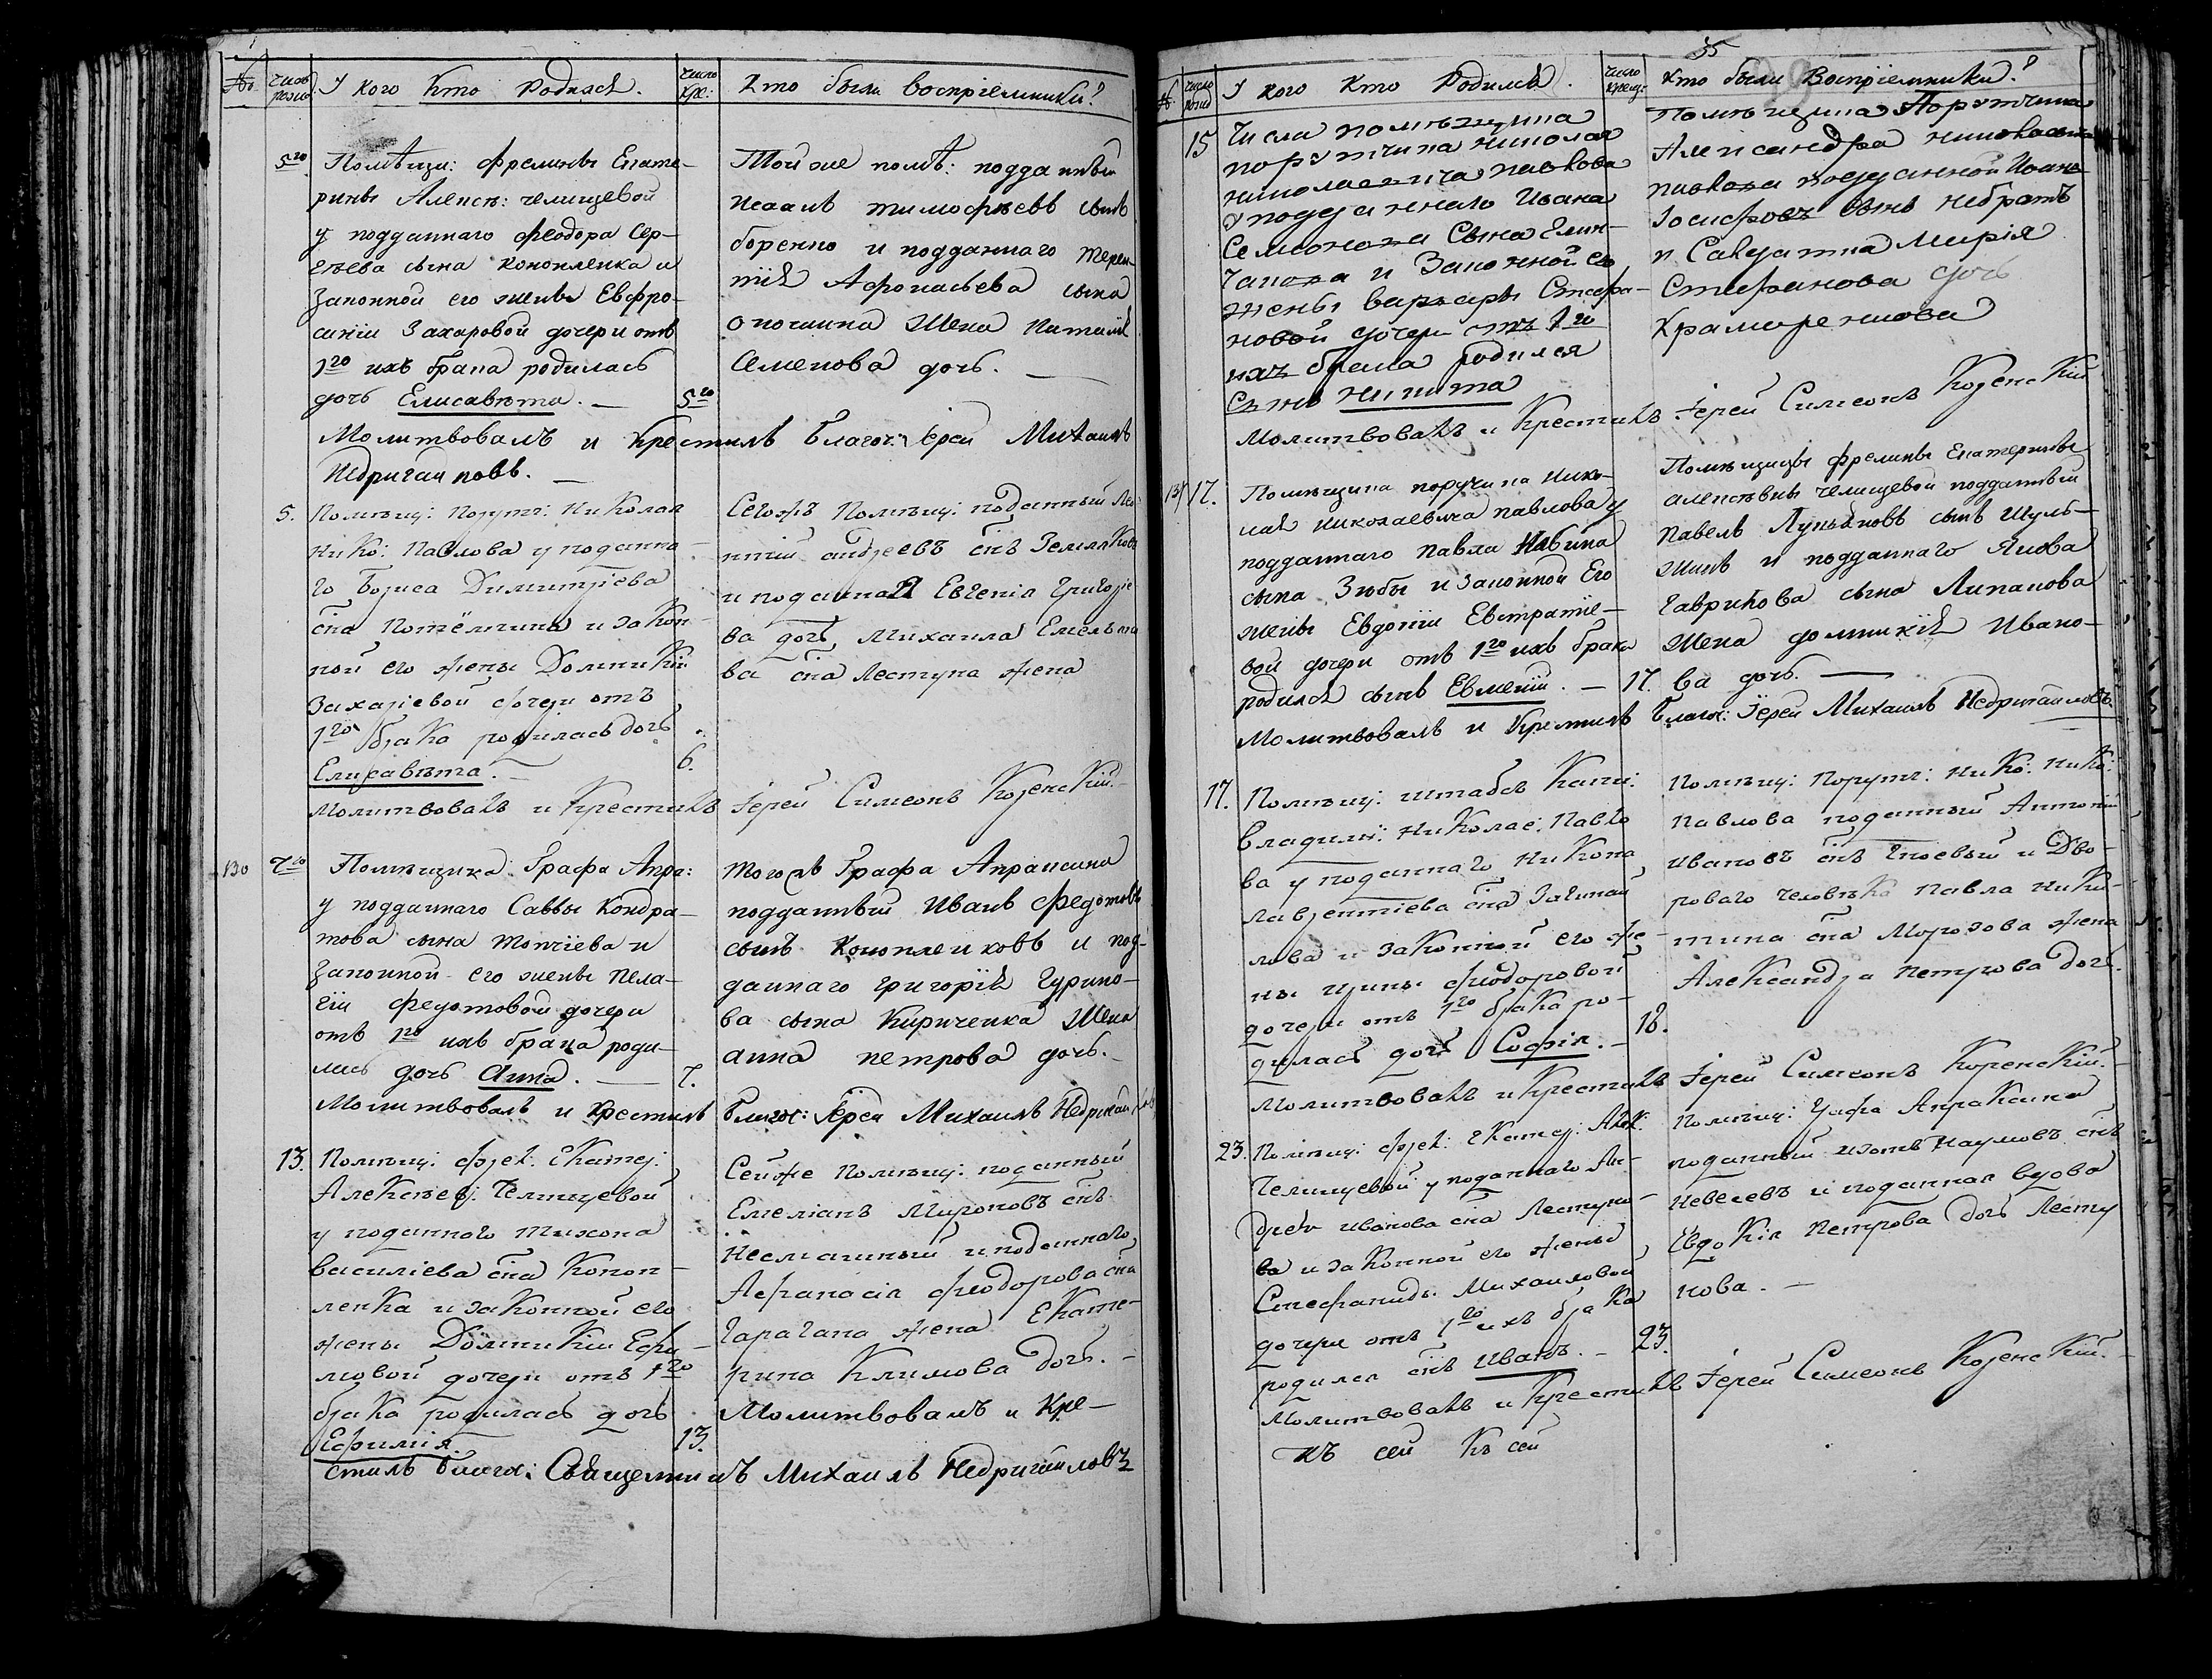 №
число рожд
У кого кто родился.
число кре:
Кто были восприемники?
5го
Помѣщи: фрелины Екате-
рины Алексѣ: Челищевой
у подданнаго Феодора Сер-
гѣева сына Кононленка и
законной его жены Евфро-
синіи Захаровой дочери отъ
1го ихъ брака родилась
дочь Елисавѣта. —
5го
Той же помѣ: подданный
Исаакъ Тимофѣевъ сынъ
и подданнаго Терен-
тія Афонасьева сына
жена Наталія
Семенова дочь. —
Молитвовалъ и крестилъ Благоч: Іерей Михаилъ
Недригайловъ. —
5.
Помѣщ: Поруч: Николая
Нико: Павлова у поданна-
го Бориса Димитріева
сна Потёмкина и закон-
ной его жены Домникіи
Захаріевой дочери отъ
1го брака родилась дочь
Елисавѣта. —
6.
Сегожъ Помѣщ: поданный Ле-
нтій андреевъ снъ
и поданная Евгенія Григоріе
ва дочь, Михаила Емельяно
ва сна Лестуна жена
Молитвовалъ и Крестилъ Іерей Симеонъ Коренскій.
130
7го
Помѣщика Графа Апра:
у подданнаго Саввы Кондра-
това сына Топчіева и
законной его жены Пела-
гіи Федотовой дочери
отъ 1го ихъ брака роди-
лась дочь Анна. —
7.
Тогожъ Графа Апраксина
подданный Иванъ Федотовъ
сынъ Кононленковъ и под-
даннаго Григорія Гурино-
ва сына Кириченка жена
Анна Петрова дочь. —
Молитвовалъ и крестилъ Благоч: Іерей Михаилъ Недригайловъ
13.
Помѣщ: фрел: Екатер:
Алексѣев: Челищевой
у поданного Тихона
Василіева сна Конон-
ленка и законной его
жены Домникіи Ефи-
мовой дочери отъ 1го
брака родилась дочь
Ефимія.
13.
Сейже Помѣщ: поданный
Емеліанъ Мироновъ снъ
и поданнаго
Афанасія Феодорова сна
Гарагана жена Екате-
рина Климова дочь. —
Молитвовалъ и Кре-
стилъ благоч: Священникъ Михаилъ Недригайловъ
35
№
число рожд
У кого кто родился.
число крещ:
Кто были Воспріемники?
15
Числа помѣщика
порутчика Николая
Николаевича Павлова
у подданнаго Ивана
Семенова сына Елин-
и законной его
жены Варвары Стефа-
новой дочери отъ 1го
ихъ брака родился
сынъ Никита
Помѣщика Порутчика
Александра Николаевича
Павлова подданной Иванъ
Іосифовъ сынъ
и Салдатка Марія
Стефанова дочь
Крамаренкова
Молитвовалъ и Крестилъ Іерей Симеонъ Коренскій
131
17.
Помѣщика поручика Нико-
лая Николаевича Павлова у
подданнаго Павла
сына Зюбы и законной его
жены Евдокіи Евстратіе-
вой дочери отъ 1го ихъ брака
родился сынъ Евменій. —
17.
Помѣщицы фрелины Екатерины
Алексѣвны Челищевой подданный
Павелъ Лукьяновъ сынъ Шуль-
жикъ и подданнаго Якова
Гаврилова сына Липанова
жена Домникія Ивано-
ва дочь. —
Молитвовалъ и Крестилъ Благоч: Іерей Михаилъ Недригайловъ
17.
Помѣщ: штабсъ Капи:
Владими: Николае: Павло
ва у поданнаго Никона
Лаврентіева сна
лова и законной его же-
ны Ирины Феодоровой
дочери отъ 1го брака ро-
дилась дочь Софія. —
18.
Помѣщ: Порутч: Нико: Нико:
Павлова поданный Антоній
Ивановъ снъ Гноевый и Дво-
роваго человѣка Павла Ники-
тина сна Морозова жена
Александра Петрова дочь.
Молитвовалъ и Крестилъ Іерей Симеонъ Коренскій.
23.
Помѣщ: фрел: Екатер: Алек:
Челищевой у поданнаго Ан-
дрея Иванова сна Лестуно-
ва и законной его жены
Стефаниды Михаиловой
дочери отъ 1го ихъ брака
родился снъ Иванъ. —
23.
Помѣщ: Графа Апраксина
поданный Изотъ Наумовъ снъ
Невесевъ и поданная вдова
Евдокія Петрова дочь Лесту
нова. —
Молитвовалъ и Крестилъ Іерей Симеонъ Коренскій.
къ сей Къ сей